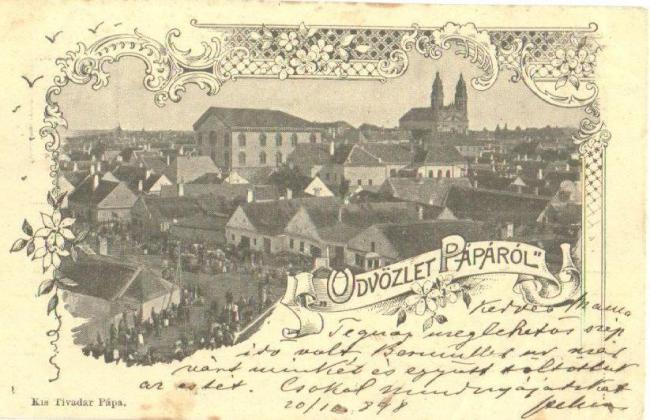 „ÜDVÖZLET PÁPÁRÓL"
Kedves Mama
Tegnap meglehetős szép
idő volt
várt minket és együtt töltöttük
az estét. Csókol mindnyájatokat
20/10 898
Kis Tivadar Pápa.